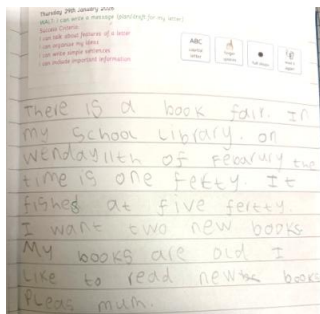 Thursday 29th January 2026
WALT: I can write a message (plan/draft for my letter)
Success Criteria:
I can talk about features of a letter
I can organise my ideas
I can write simple sentences
I can include important information
ABC
capital letter
finger spaces
full stops
There is a book fair. In
my School Library. on
Wenday 11th of Febarury the
time is one fertty. It
fishes at five fertty.
I want two new books
My books are old I
Like to read new books
Pleas mum.